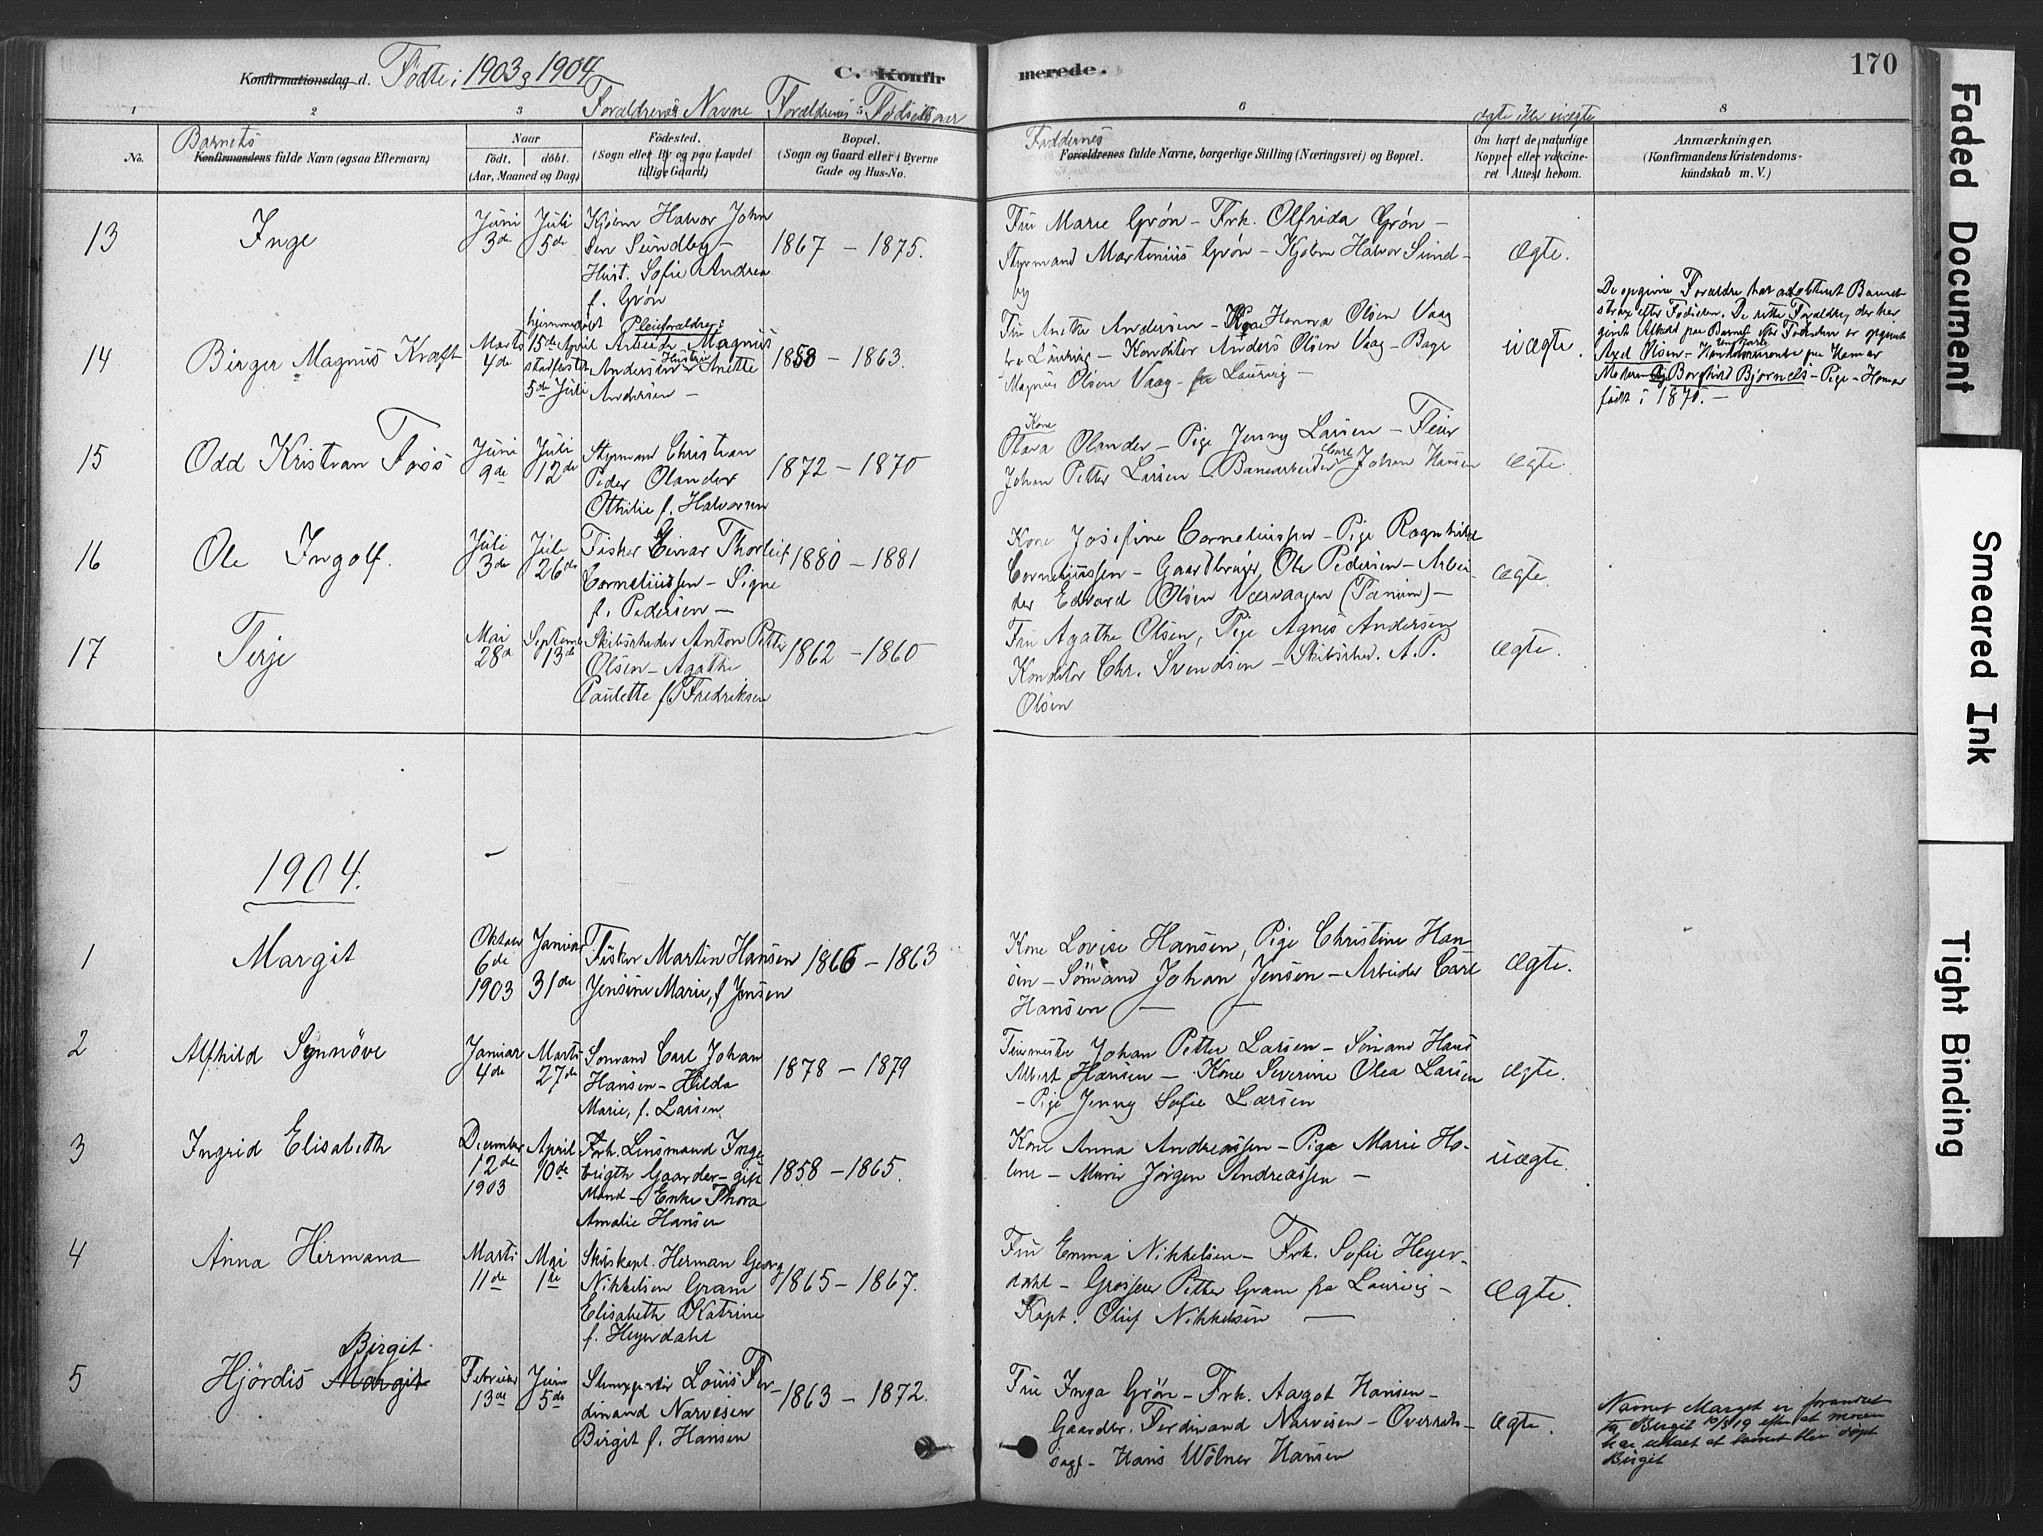 Konfirmationsdag d. Födte i 1903 og 1904
C. Konfirmerede.
170
1 2 3 4 5 6 7 8
Forældrenes Navne
Forældrenes Födselsaar
ægte eller uægte
No.
Barnets
Konfirmandens fulde Navn (ogsaa Efternavn)
Naar
födt. döbt.
(Aar, Maaned og Dag)
Födested.
(Sogn eller By og paa Landet
tillige Gaard)
Bopæl.
(Sogn og Gaard eller i Byerne
Gade og Hus-No.
Faddernes
Forældrenes fulde Navne, borgerlige Stilling (Næringsvei) og Bopæl.
Om havt de naturlige
Kopper eller vakcine-
ret Attest herom.
Anmærkninger.
(Konfirmandens Kristendoms-
kundskab m. V.)
13
Inge
Juni
3de
Juli
5de
Kjöbm Halvor John
sen Sundbeg –
Hust. Sofie Andrea
f. Grön
1867 – 1875.
Fru Marie Grön – Frk. Olfrida Grön –
Styrmand Martinius Grön – Kjöbm Halvor Sund-
beg
Ægte.
14
Birger Magnus Kraft
Marts
4de
hjemmedöbt
15de April
stadfestet
5de Juli
Pleieforældre:
Arbeider Magnus
Andersen Hustru Anette
Andersen –
1858 – 1863.
Fru Anette Andersen – Kone Hanna Olsen Vaag
Laurvig – Konditor Anders Olsen Vaag – Bager
Magnus Olsen Vaag – fra Laurvig –
uægte.
De opgivne Forældre har adopteret Barnet
strax efter Födselen. De rette Forældre, der har
givet Afkald paa Barnet efter Födselen er opgivet
Axel Olsen – Ungkarl Kontorist paa Hamar
Moderen Borghild Bjornels – Pige – Hamar
födt i 1870. –
15
Odd Kristian Foss
Juni
9de
Juli
12de
Styrmand Christian
Peder Olander
Othilie f. Halvorsen
1872 – 1870
Kone
Olava Olander – Pige Jenny Larsen – Feier
Johan Petter Larsen – Banearbeider Johan Hansen
ægte.
16
Ole Ingolf.
Juli
3de
Juli
26de
Fisker Einar Thorleif
Corneliussen – Signe
f. Pedersen –
1880 – 1881
Kone Josefine Corneliussen – Pige Ragnhild
Corneliussen – Gaardbruger, Ole Pedersen – Arbei-
der Edvard Olsen Værvaagen (Tanum) –
ægte.
17
Terje
Mai
28de
Septemb
13de
Skibsrheder Anton Petter
Olsen – Agathe
Paulette f. Fredriksen
1862 – 1860
Fru Agathe Olsen, Pige Agnes Andersen
Konditor Chr. Svendsen – Skibsrhed. A. P.
Olsen
ægte.
1904.
1
Margit
Oktober
6de
1903
Januar
31de
Fisker Martin Hansen
Jensine Marie, f Jensen
1866 – 1863
Kone Lovise Hansen, Pige Christine Han-
sen – Sömand Johan Jensen – Arbeider Carl
Hansen –
ægte.
2
Alfhild Synnöve
Januar
4de
Marts
27de
Sömand Carl Johan
Hansen – Hilda
Marie, f. Larsen
1878 – 1879
Feiermester Johan Petter Larsen – Sömand Hans
Albert Hansen – Kone Severine Olea Larsen
– Pige Jenny Sofie Larsen
ægte.
3
Ingrid Elisabeth
December
12de
1903
April
10de
Forh. Lensmand Inge-
brigth Gaarder – gift
Mand – Enke Thora
Amalie Hansen
1858 – 1865.
Kone Anna Andreassen – Pige Marie Ho-
lene – Murer Jörgen Andreassen –
uægte.
4
Anna Hermana
Marts
11de
Mai
1de
Skibskapt. Herman Georg
Nikkelsen Gram
Elisabeth Katrine
f. Heyerdahl
1865 – 1867.
Fru Emma Nikkelsen – Frk. Sofie Heyer-
dahl – Grosserer Petter Gram fra Laurvig –
Kapt. Oluf Nikkelsen
ægte.
5
Birgit
Hjördis Margit
Februar
13de
Juni
5de
Louis Fer
dinand Narvesen
Birgit f. Hansen
1863 – 1872.
Fru Inga Grön – Frk. Aagot Hansen –
Gaardbr. Ferdinand Narvesen – Overrets-
sagf – Hans Wölner Hansen
ægte.
Navnet Margit er forandret
til Birgit 10/3 19 efter at moren
har uttalt at barnet blev döpt
Birgit
Faded Document
Smeared Ink
Tight Binding